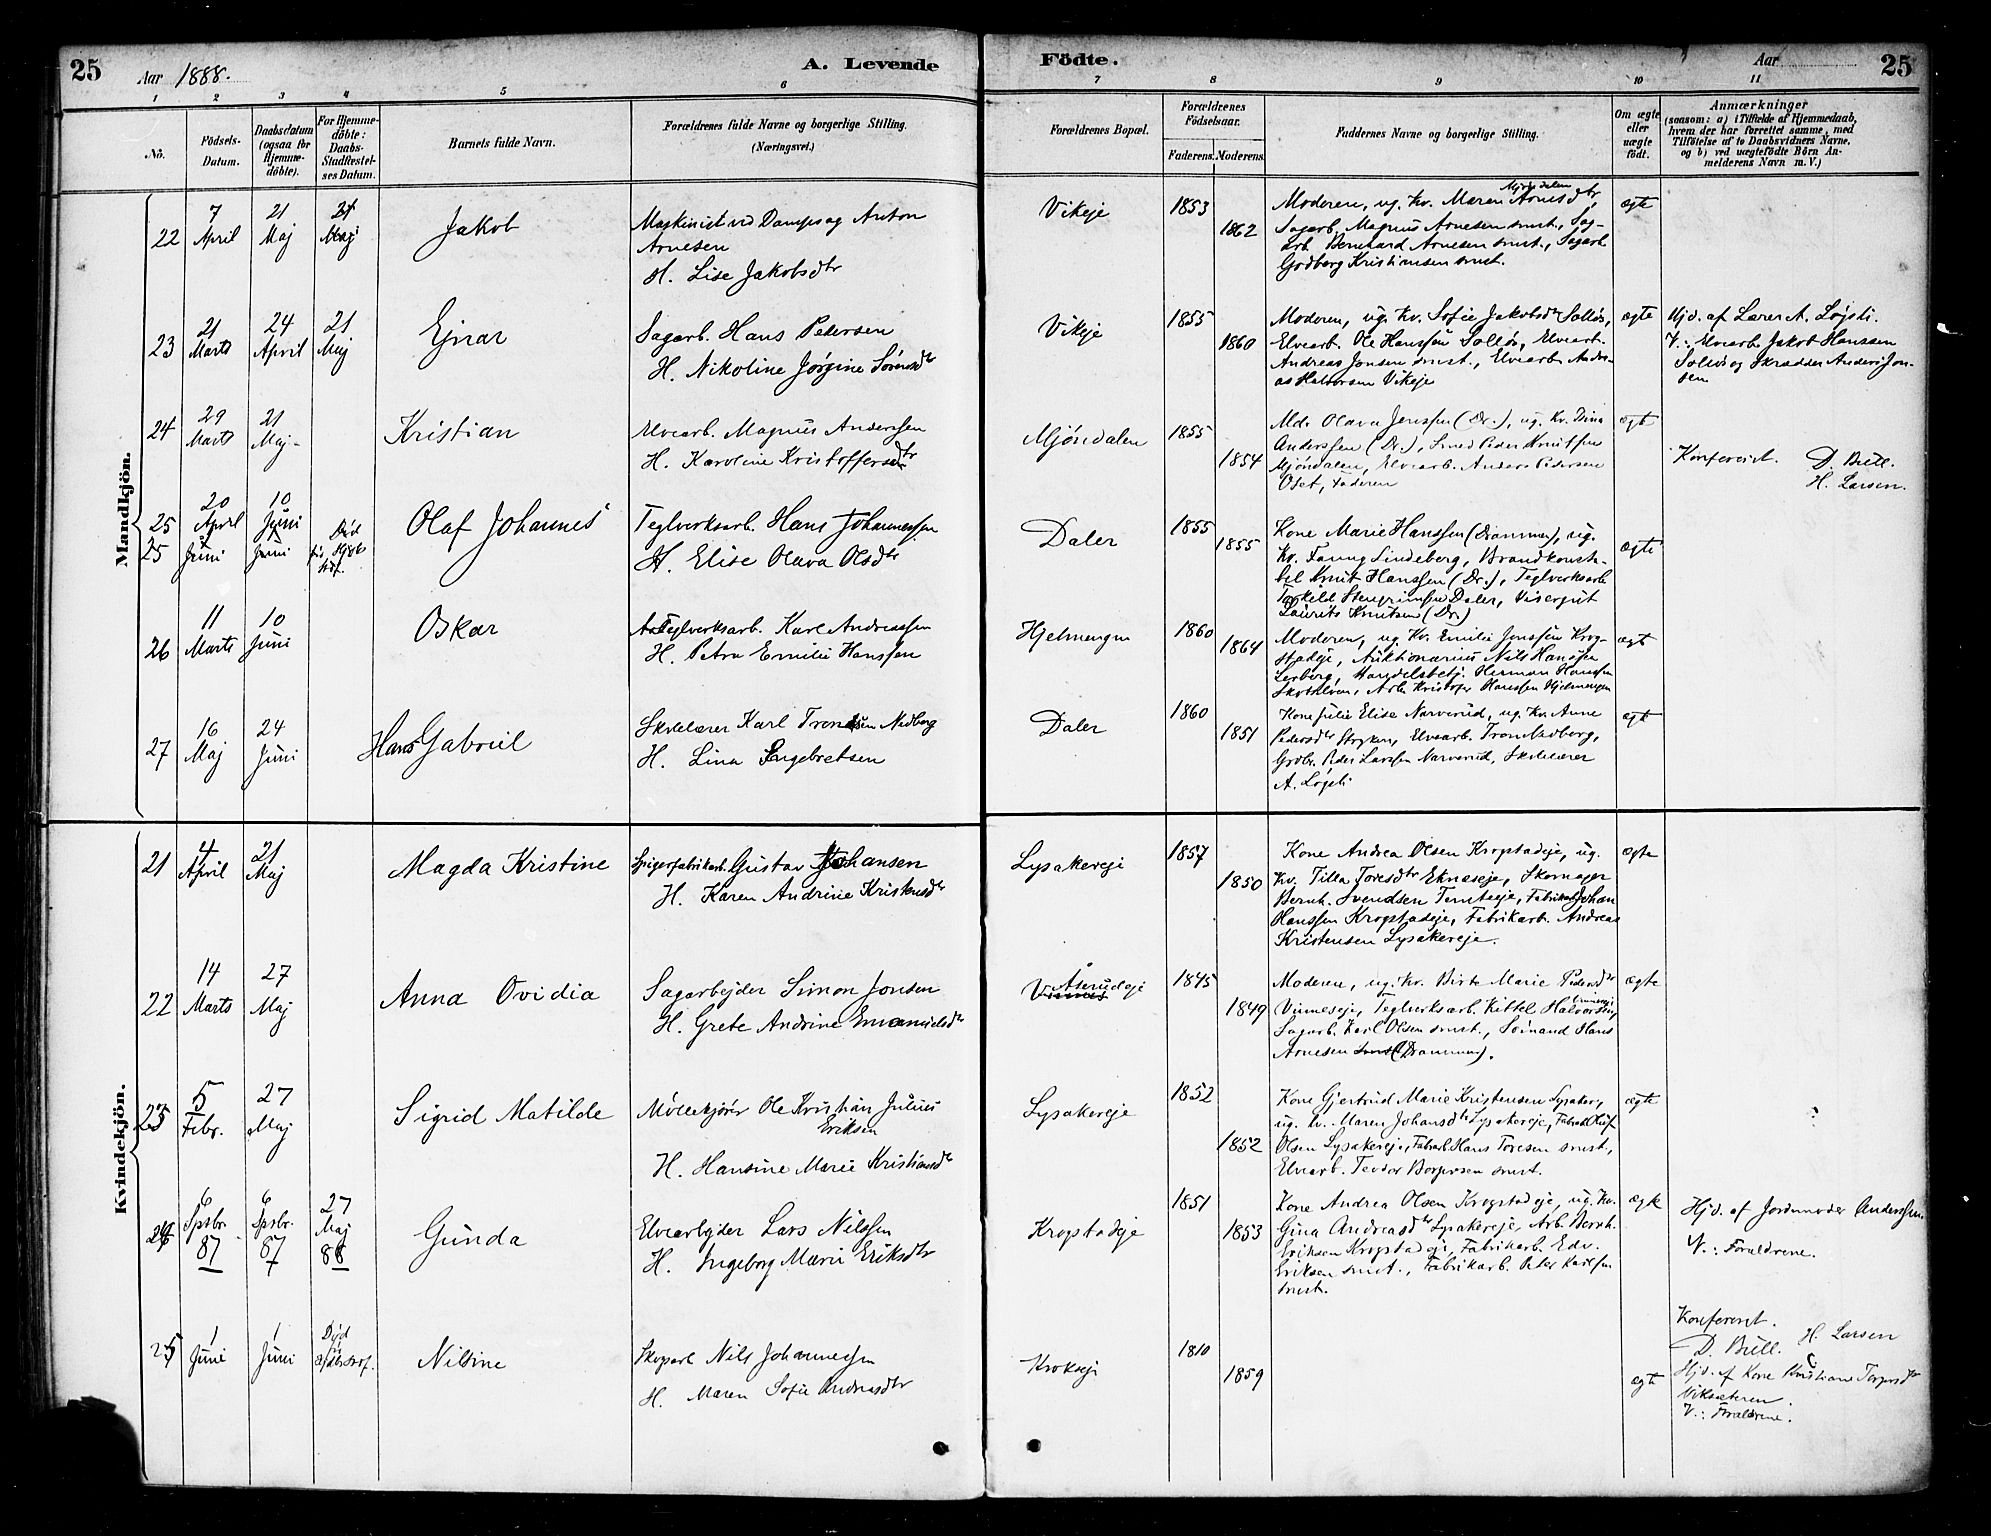 25
Aar 1888.
A. Levende
Födte.
Aar
25
1 2 3 4 5 6 7 8 9 10 11
No.
Födsels-
Datum.
Daabsdatum
(ogsaa for
Hjemme-
döbte).
For Hjemme-
döbte:
Daabs-
Stadfæstel-
ses Datum.
Barnets fulde Navn.
Forældrenes fulde Navne og borgerlige Stilling.
(Næringsvei.)
Forældrenes Bopæl.
Forældrenes
Födselsaar.
Faderens.
Moderens.
Faddernes Navne og borgerlige Stilling.
Om ægte
eller
uægte
födt.
Anmærkninger
(saasom: a) i Tilfælde af Hjemmedaab,
hvem der har forrettet samme, med
Tilföielse af to Daabsvidners Navne,
og b) ved uægtefödte Börn An-
melderens Navn m. V.)
Mandkjön.
22
7
April
21
Maj
21
Maj
Jakob
Maskinist ved Dampsag Anton
Arnesen
H. Lise Jakobsdtr
Vikeje
1853
1862
Mjøndalen
Moderen, ug. Kv. Maren Arnesdtr,
Sagarb. Magnus Arnesen smst., Sag-
arb. Bernhard Arnesen smst., Sagarb.
Godberg Kristiansen smst.
ægte
23
21
Marts
24
April
21
Maj
Ejnar
Sagarb. Hans Petersen
H. Nikoline Jørgine Sørensdtr
Vikeje
1855
1860
Moderen, ug. Kv. Sofie Jakobsdtr Solløs,
Elvearb. Ole Hanssen Solløs, Elvearb.
Andreas Jonsen smst., Elvearb. Andre-
as Halvorsen Vikeje
ægte
Hjd. af Lærer A. Løgsli.
V.: Elvearb. Jakob Hanssen
Solløs og Skrædder Anders Jon-
sen
24
29
Marts
21
Maj
Kristian
Elvearb. Magnus Anderssen
H. Karoline Kristoffersdtr
Mjöndalen
1855
1854
Mdr Olava Jenssen (Dr.), ug. Kv. Trina
Anderssen (Dr.), Smed Peder Knutssen
Mjöndalen, Elvearb. Anders Pedersen
Oset, Faderen
ægte
Konfereret. D. Bull.
H. Larsen.
25
20
April
10
Juni
Olaf Johannes
Teglverksarb. Hans Johannessen
H. Elise Olava Olsdtr
Daler
1855
1855
Kone Marie Hanssen (Drammen), ug.
Kv. Fanny Lindeberg, Brandkonsta-
bel Knut Hanssen (Dr.), Teglverksarb
Torkild Stengrimsen Daler, Visergut
Laurits Knutsen (Dr.)
ægte
26
11
Marts
10
Juni
Oskar
Teglverksarb. Karl Andreassen
H. Petra Emilie Hanssen
Hjelmengen
1860
1864
Moderen, ug. Kv. Emilie Jenssen Krog-
stadeje, Auktionarius Nils Hanssen
Lerberg, Handelsbetj. Herman Hanssen
Skotselven, Arb. Kristofer Hanssen Hjelmengen
ægte
27
16
Maj
24
Juni
Hans Gabriel
Skolelærer Karl Tronsen Nedberg
H. Lina Engebretsen
Daler
1860
1851
Kone Julie Elise Narverud, ug. Kv. Anne
Pedersdtr Stryken, Elvearb. Tron Nedberg,
Grdbr. Peder Larssen Narverud, Skolelærer
A. Løgsli
ægte
Kvindekjön.
21
4
April
21
Maj
Magda Kristine
Spigerfabrikarb. Gustav Johansen
H. Karen Andrine Kristensdtr
Lysakereje
1857
1850
Kone Andrea Olsen Krogstadeje, ug.
Kv. Tilla Toresdtr Eknæseje, Skomager
Bernh. Svendsen Temteeje, Fabrikarb Johan
Hanssen Krogstadeje, Fabrikarb. Andreas
Kristensen Lysakereje.
ægte
22
14
Marts
27
Maj
Anna Ovidia
Sagarbejder Simon Jonsen
H. Grete Andrine Emanuelsdtr
Åserudeje
1845
1849
Moderen, ug. Kv. Birte Marie Pedersdtr
Vinneseje, Teglverksarb. Kittel Halvorsen,
Sagarb. Karl Olsen smst., Sömand Hans
Arnesen (Drammen).
ægte
23
5
Febr.
27
Maj
Sigrid Matilde
Møllekjörer Ole Kristian Julius
Eriksen
H. Hansine Marie Kristiansdtr
Lysakereje
1852
1852
Kone Gjertrud Marie Kristensen Lysaker,
ug. Kv. Maren Johansdtr Lysakereje, Fabrikarb Oluf
Olsen Lysakereje, Fabrarb. Hans Toresen smst.,
Elvearb. Teodor Borgersen smst.
ægte
24
6
Spsbr.
87
6
Spsbr.
87
27
Maj
88
Gunda
Elvearbejder Lars Nilssen
H. Ingeborg Marie Eriksdtr
Krogstadeje
1851
1853
Kone Andrea Olsen Krogstadeje, ug. Kv.
Gina Andreasdtr Lysakereje, Arb. Bernh.
Eriksen Krogstadeje, Fabrikarb. Edv.
Eriksen smst., Fabrikarb. Peter Karlsen
smst.
ægte
Hjd. af Jordmoder Anderssen.
V.: Forældrene.
25
1
Juni
1
Juni
Nilsine
Skoparb Nils Johannessen
H. Maren Sofie Andreasdtr
Krokseje
1810
1859
ægte
Konfereret.
D. Bull. H. Larsen
Hjd. af Kone Kristiane Torgersdtr
Viksæteren.
V.: Forældrene.